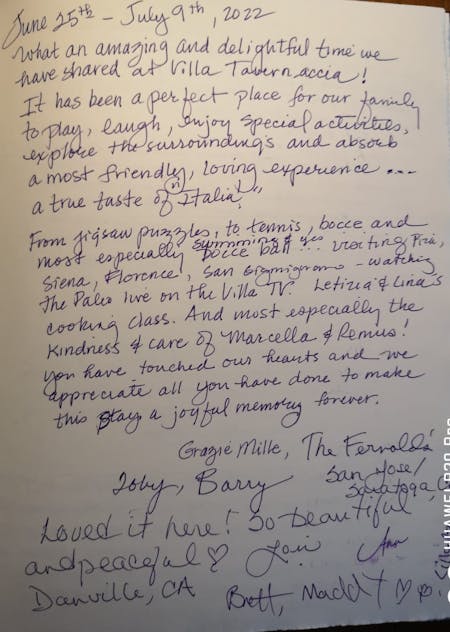 June 25th - July 9th, 2022
What an amazing and delightful time we
have shared at Villa Tavernaccia!
It has been a perfect place for our family
to play, laugh, enjoy special activities,
explore the surroundings and absorb
a most friendly, loving experience ...
a true taste of "Italia!"
From jigsaw puzzles, to tennis, bocce and
swimming & yes
most especially bocce ball!... visiting Pisa,
Siena, Florence, San Gigmignano - watching
the Palio live on the Villa TV. Letizia & Lina's
cooking class. And most especially the
kindness & care of Marcella & Remus!
You have touched our hearts and we
appreciate all you have done to make
this stay a joyful memory forever.
Grazie Mille, The Fervolds
Toby, Barry
San Jose/
Saratoga,
Loved it here! So beautiful
and peaceful ♡ Lori
Ann
Danville, CA
Brett, Maddy ♡